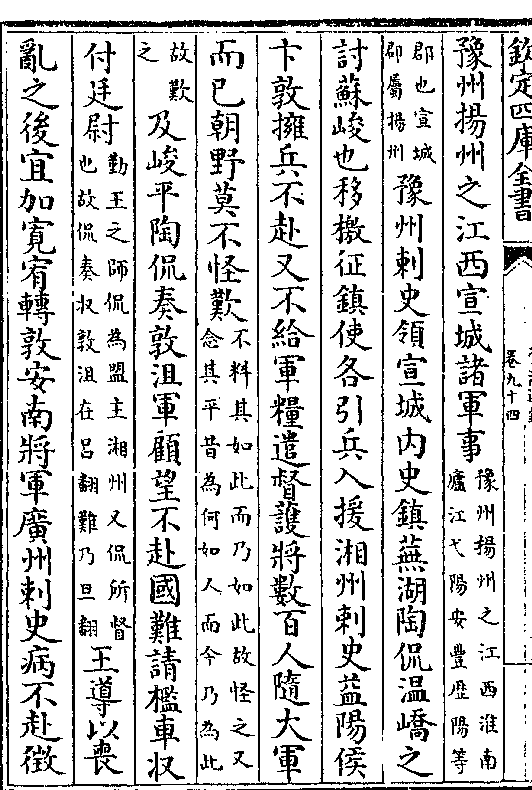 欽定四庫全書
卷九十四
豫州揚州之江西宣城諸軍事豫州揚州之江西淮南廬江弋陽安豐歷陽等
郡也宣城郡屬揚州豫州刺史領宣城內史鎮蕪湖陶侃温嶠之
討蘇峻也移檄征鎮使各引兵入援湘州刺史益陽侯
卞敦擁兵不赴又不給軍糧遣督護將數百人隨大軍
而已朝野莫不怪歎不料其如此而乃如此故怪之又念其平昔為何如人而今乃為此
故歎之及峻平陶侃奏敦沮軍顧望不赴國難請檻車収
付廷尉勤王之師侃為盟主湘州又侃所督也故侃奏収敦沮在呂翻難乃旦翻王導以喪
亂之後宜加寛宥轉敦安南將軍廣州刺史病不赴徵